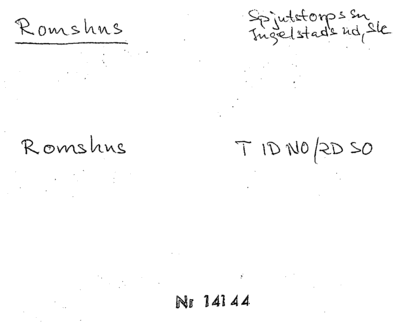 Romshus
Spjutstorps sn
Ingelstads hd, Sk
Romshus
T 1D NO/2D SO
Nr 14144